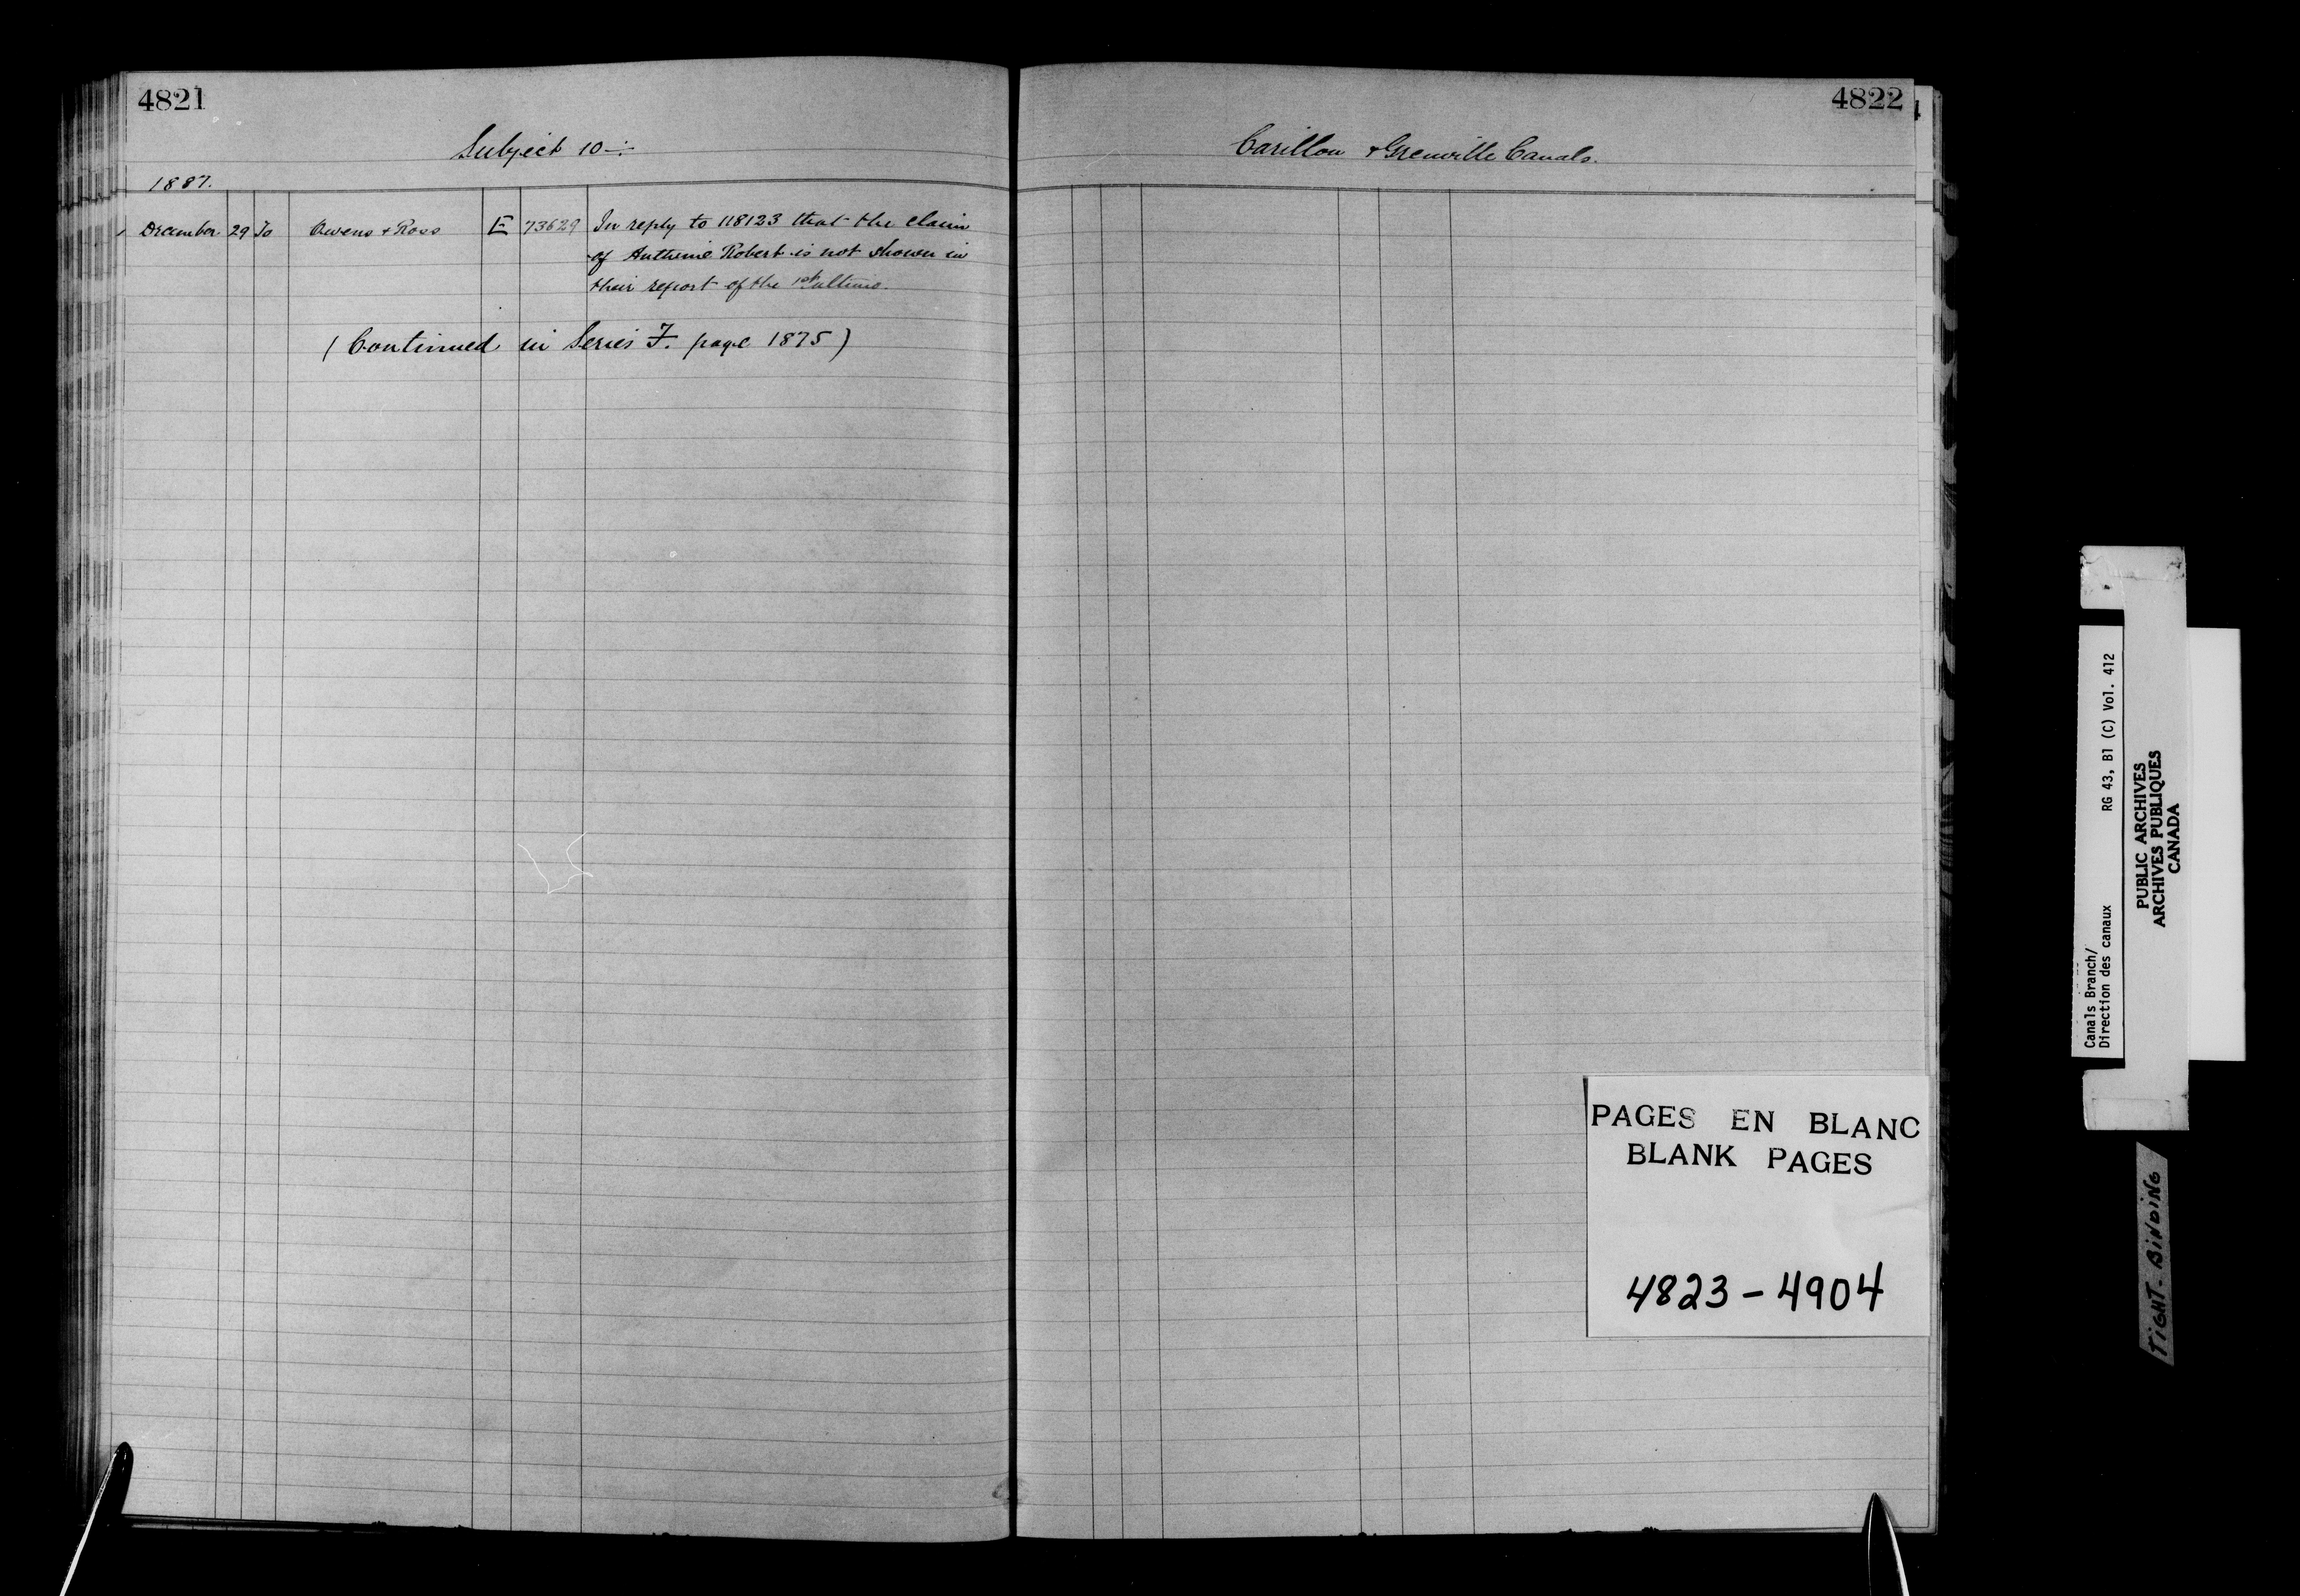 4821
Subject 10 -:-
1887.
December 29 To Owens & Ross E 73629 In reply to 118123 that the claim
of Anthime Robert is not shown in
their report of the 1st ultimo.
(Continued in Series F. page 1875)
4822
Carillon & Grenville Canals.
PAGES EN BLANC
BLANK PAGES
4823 - 4904
Canals Branch/
Direction des canaux RG 43, B1 (C) Vol. 412
PUBLIC ARCHIVES
ARCHIVES PUBLIQUES
CANADA
TIGHT - BINDING